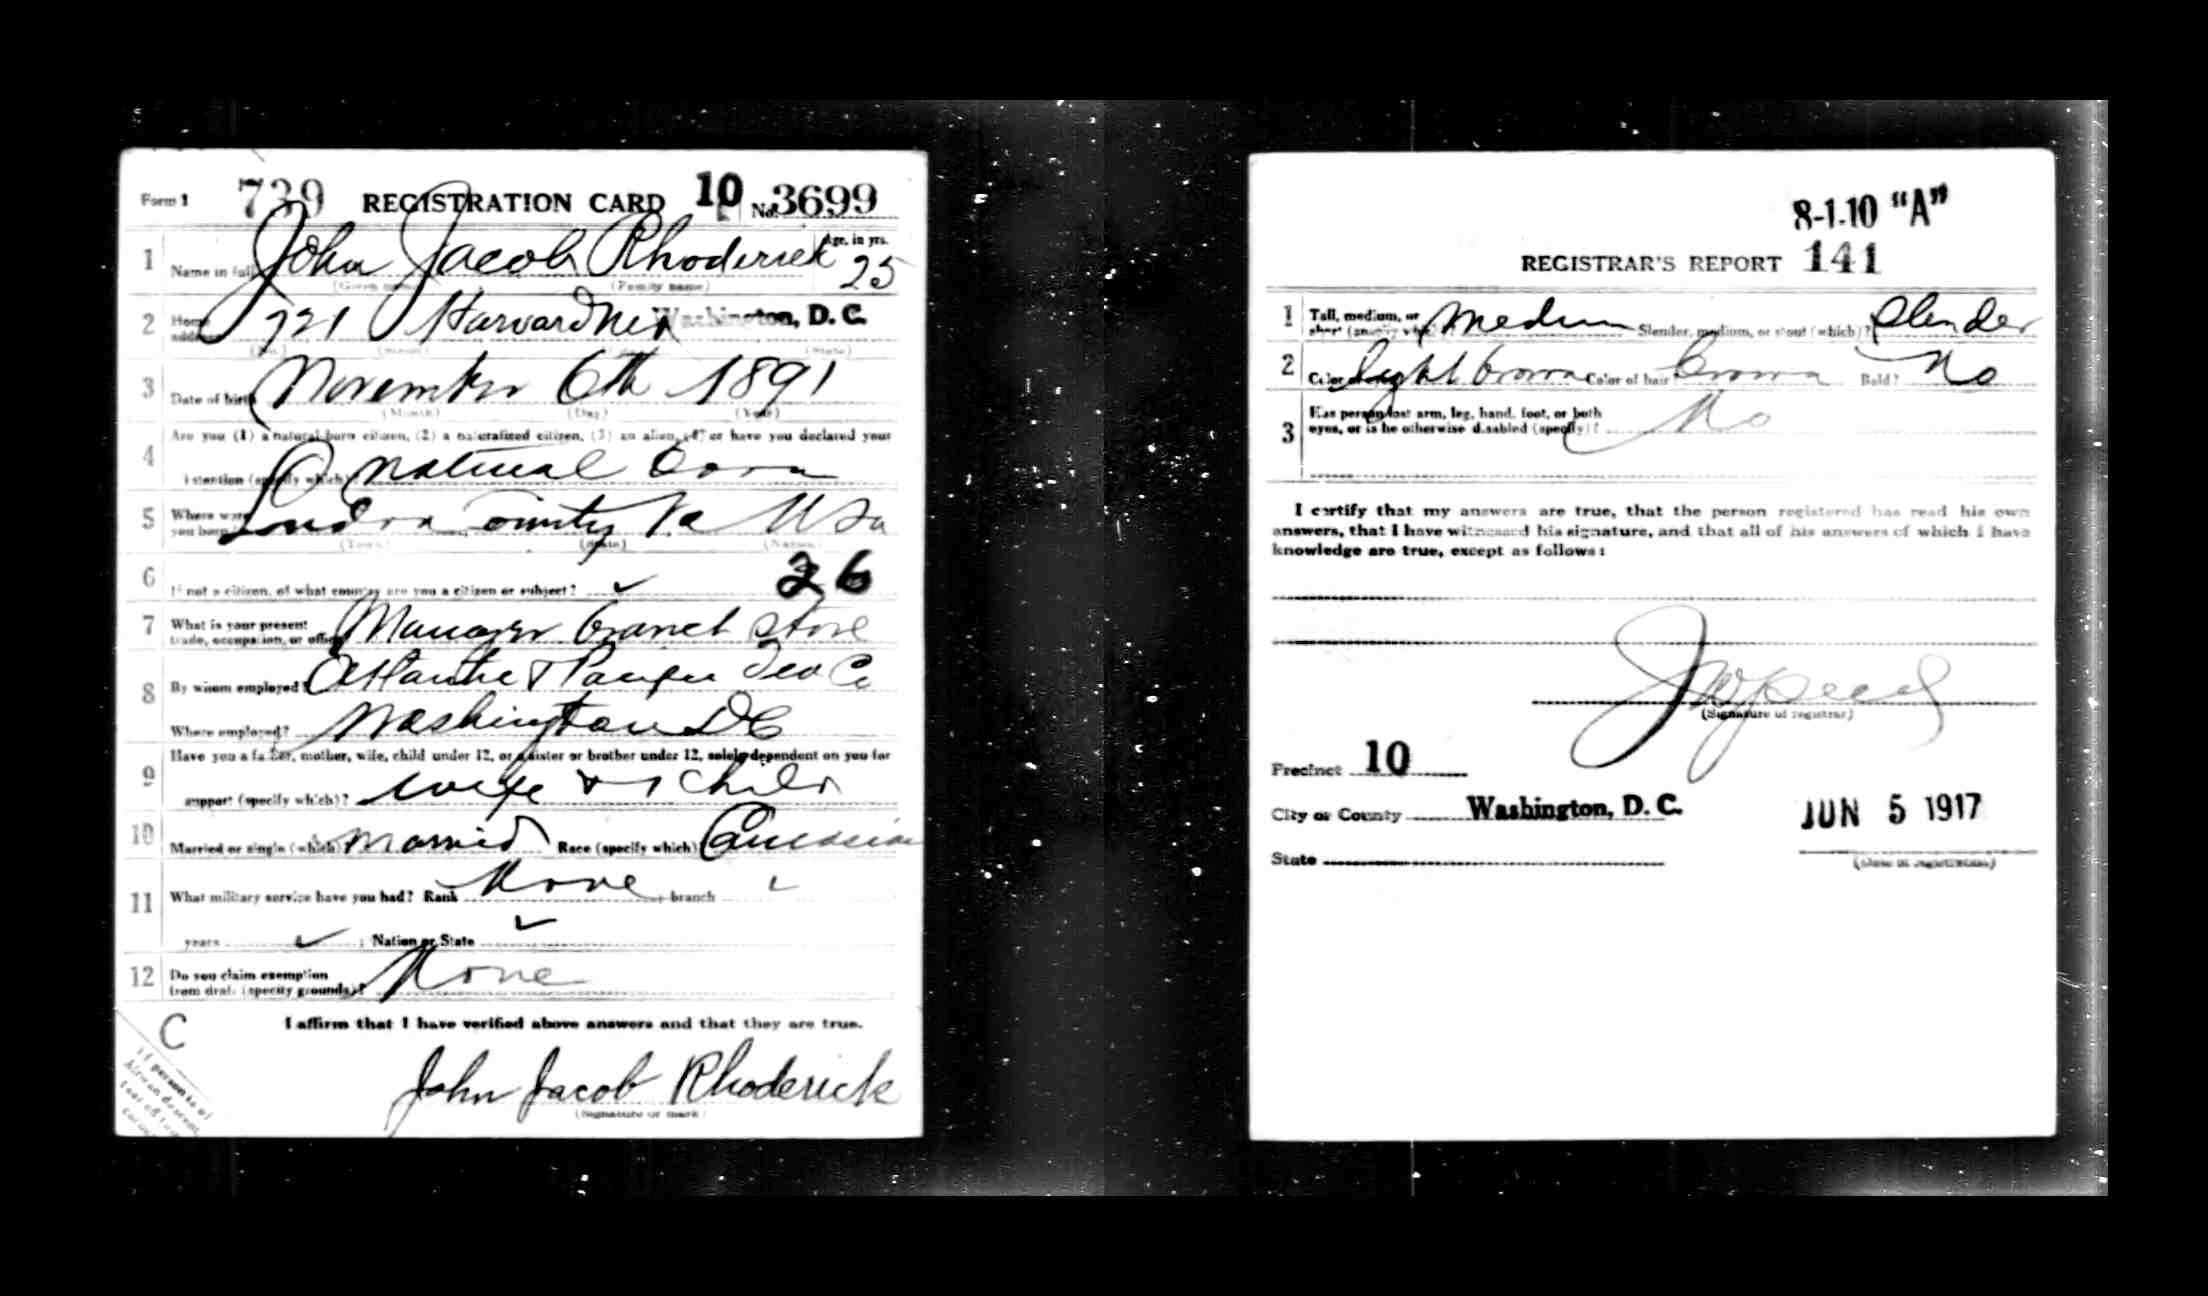 Form 1 739 REGISTRATION CARD 10 No. 3699
1 Name in full John Jacob Rhoderick Age, in yrs. 25
(Given name) (Family name)
2 Home address 721 Harvard Washington, D. C.
(No.) (Street) (State)
3 Date of birth November 6th 1891
(Month) (Day) (Year)
4 Are you (1) a natural-born citizen, (2) a naturalized citizen, (3) an alien, (4) or have you declared your
intention (specify which)? natural born
5 Where were you born? Loudon County Va USa
(Town) (State) (Nation)
26
6 If not a citizen, of what country are you a citizen or subject?
7 What is your present trade, occupation, or office? Manager branch store
8 By whom employed? Atlantic & Pacific Tea Co
Where employed? Washington DC
9 Have you a father, mother, wife, child under 12, or a sister or brother under 12, solely dependent on you for
support (specify which)? wife & 1 child
10 Married or single (which)? Married Race (specify which)? Caucasian
11 What military service have you had? Rank None ; branch
years ; Nation or State
12 Do you claim exemption from draft (specify grounds)? None
I affirm that I have verified above answers and that they are true.
C
John Jacob Rhoderick
(Signature or mark)
If person is of
African descent,
tear off
8-1-10 "A"
REGISTRAR'S REPORT 141
1 Tall, medium, or short (specify which)? Medium Slender, medium, or stout (which)? Slender
2 Color of eyes? light brown Color of hair? brown Bald? No
3 Has person lost arm, leg, hand, foot, or both
eyes, or is he otherwise disabled (specify)? No
I certify that my answers are true, that the person registered has read his own
answers, that I have witnessed his signature, and that all of his answers of which I have
knowledge are true, except as follows:
(Signature of registrar)
Precinct 10
City or County Washington, D. C. JUN 5 1917
State (Date of registration)